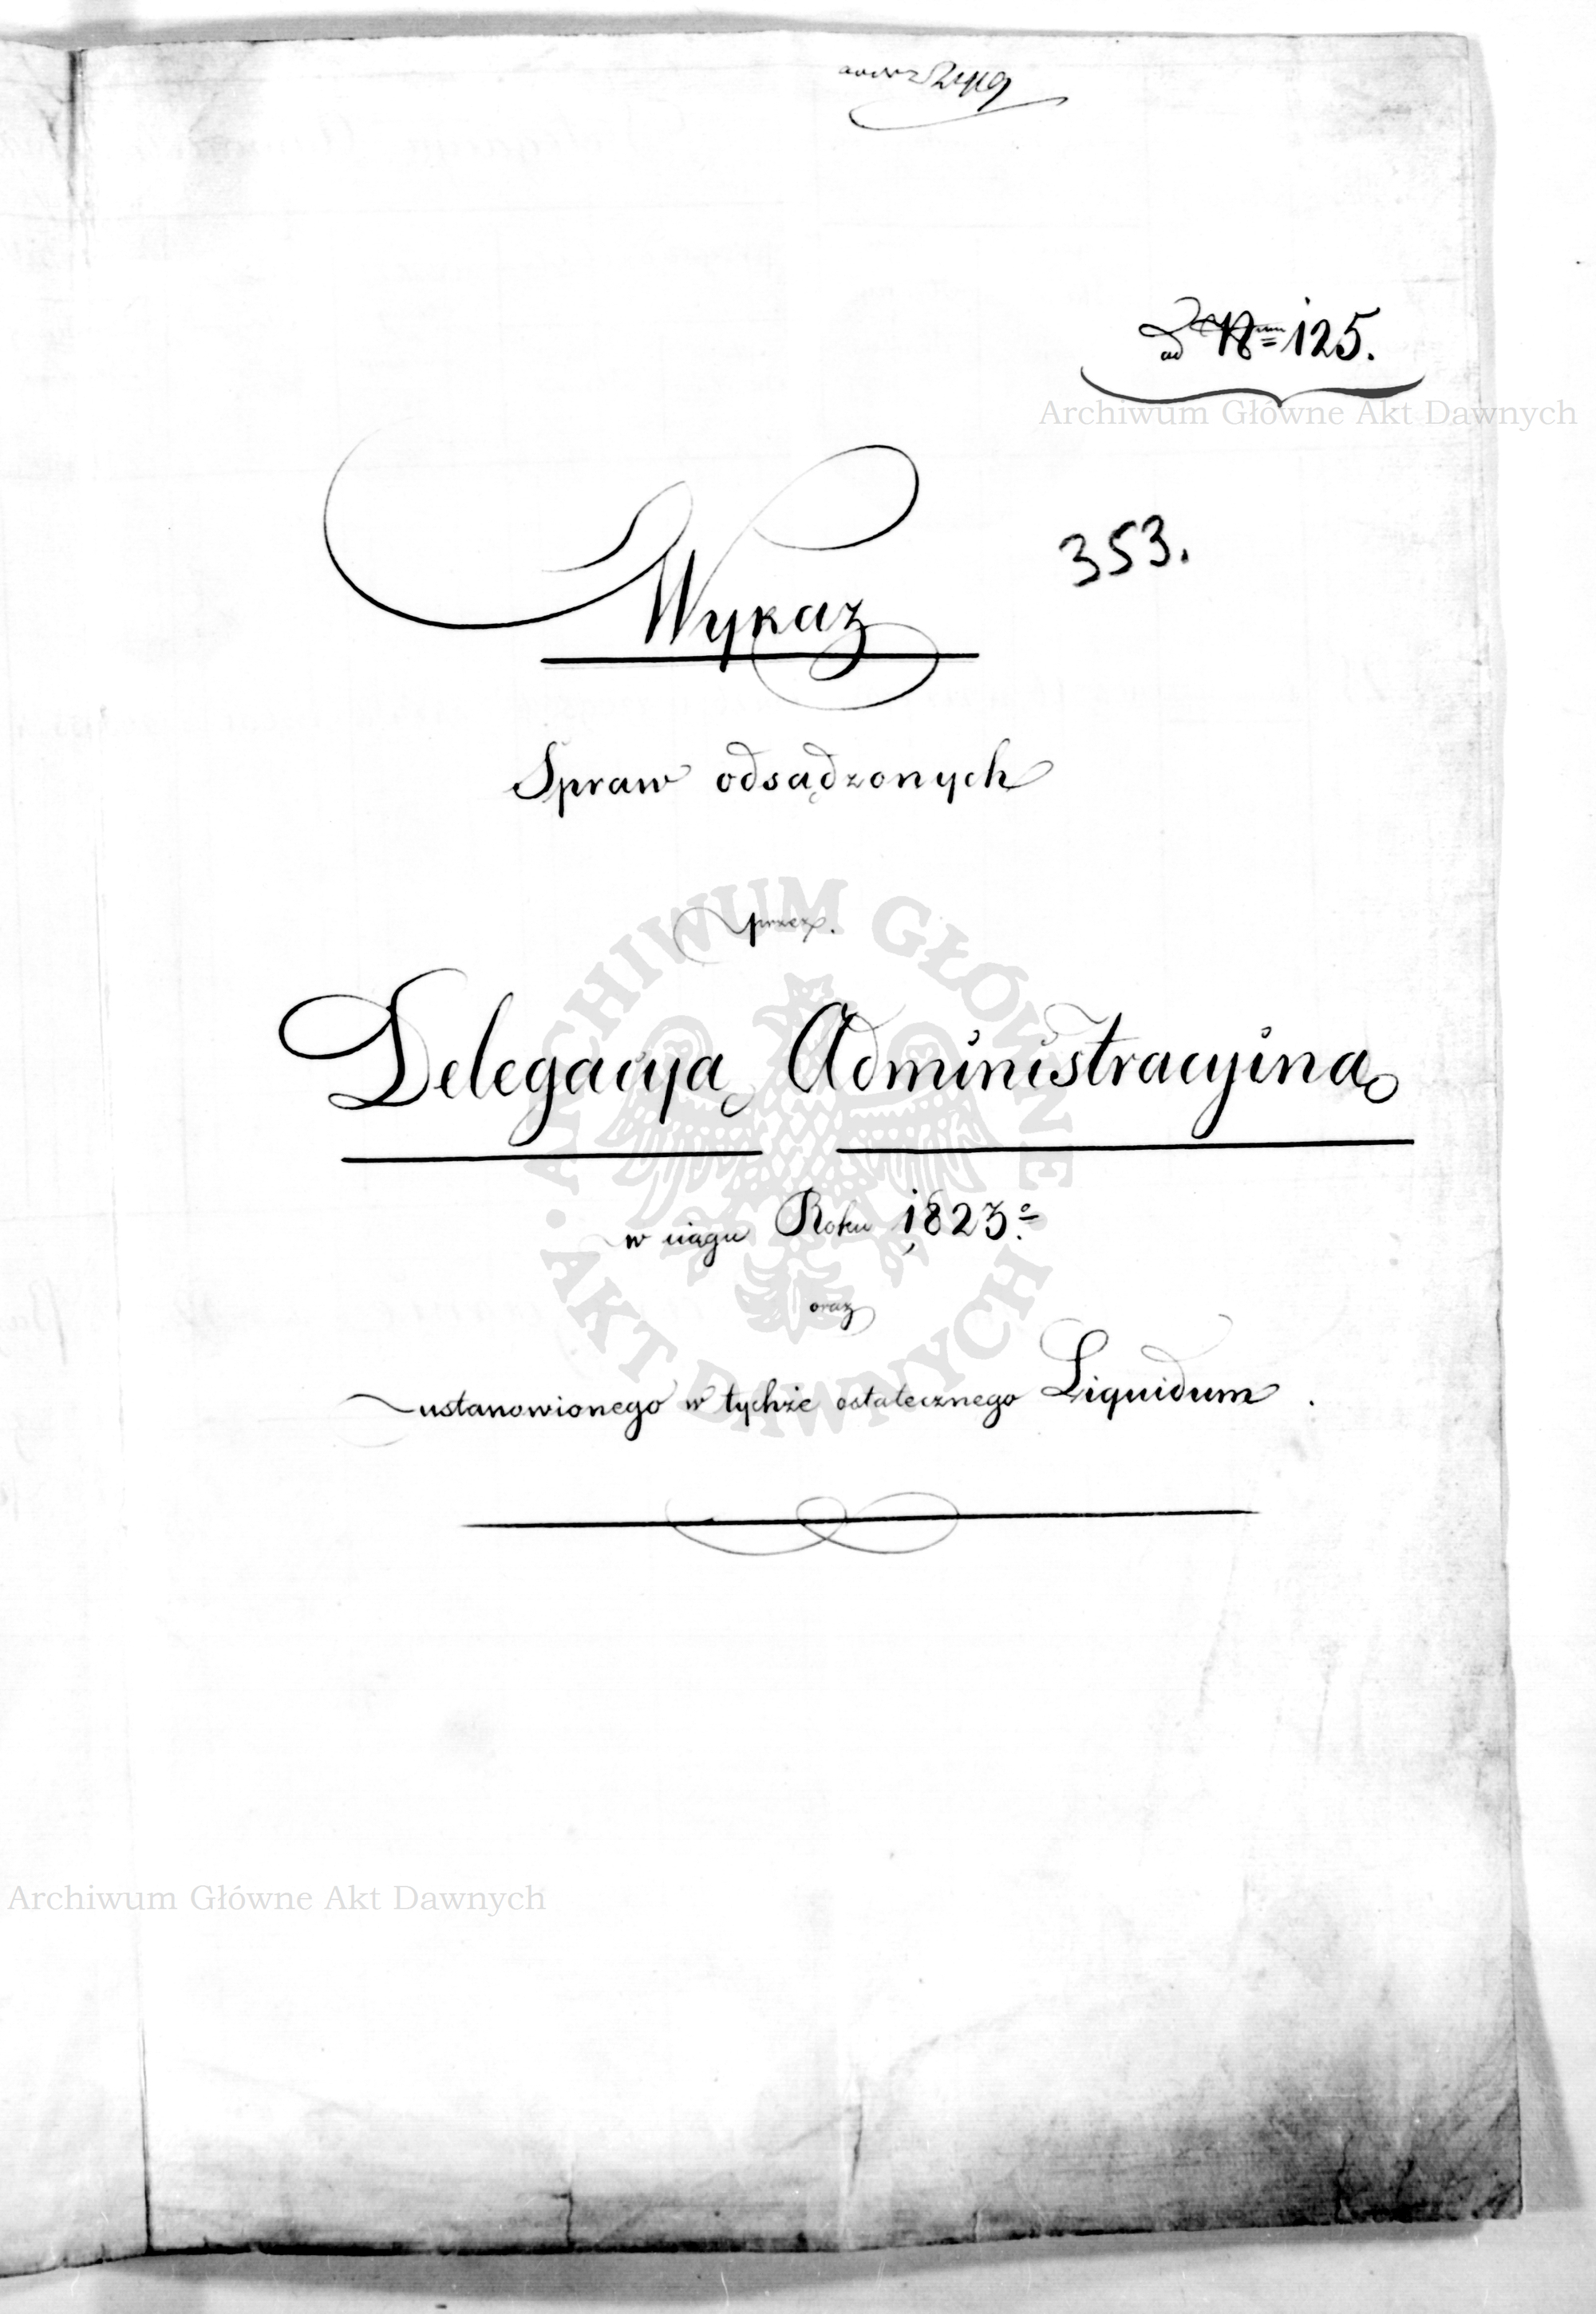 ad Num 125.
Archiwum Główne Akt Dawnych
353.
Wykaz
Spraw odsądzonych
przez.
Delegacyą Administracyiną
w ciągu Roku 1823o.
oraz
ustanowionego w tychże ostatecznego Liquidum.
ARCHIWUM GŁÓWNE AKT DAWNYCH
Archiwum Główne Akt Dawnych